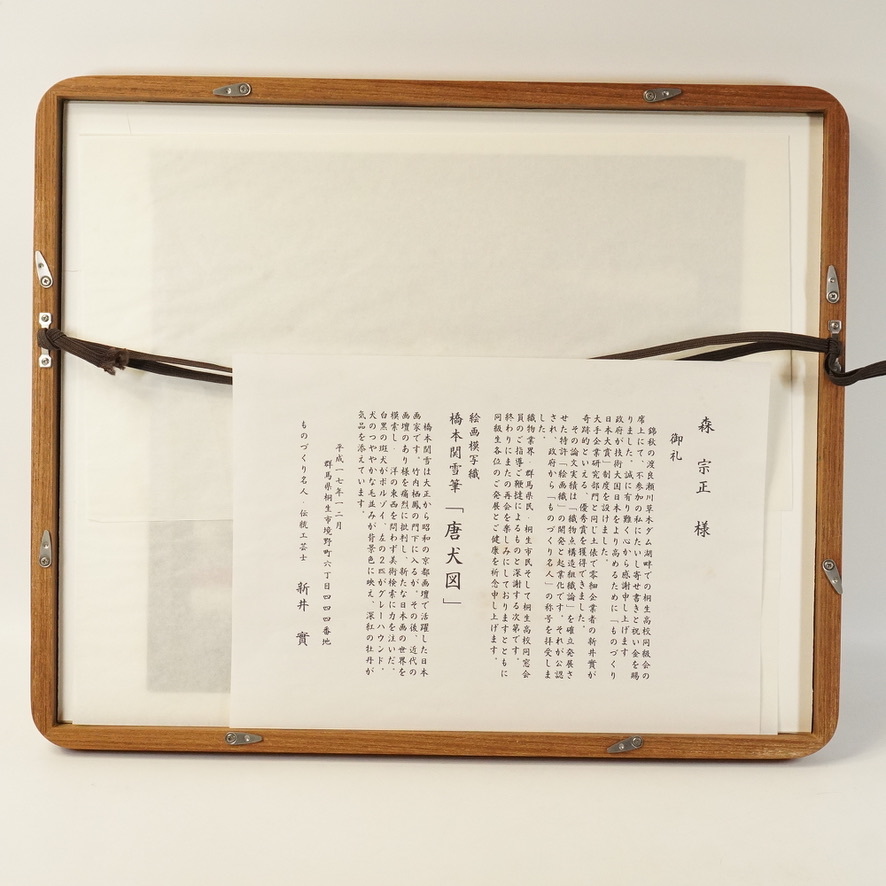 森 宗正 様
御礼
錦秋の渡良瀬川草木ダム湖畔での桐生高校同級会の
席上にて、不参加の私にたいし寄せ書きと祝い金を賜
りました。誠に有り難く心から感謝申し上げます
政府が技術大国日本をより高めるために「ものづくり
日本大賞」制度を設けました。
大手企業研究部門と同じ土俵で零細企業者の新井實が
奇跡的といえる、優秀賞を獲得できました。
その論文実績は「織物点構造組織論」を確立発展さ
せた特許「絵画織」の開発と起業化です。それが公認
され、政府から「ものづくり名人」の称号を拝受しま
した。
織物業界、群馬県民・桐生市民そして桐生高校同窓会
員のご指導ご鞭撻によるものと深謝する次第です。
終わりにまたの再会を楽しみにしておりますとともに
同級生各位のご発展とご健康を祈念申し上げます。
絵画模写織
橋本関雪筆「唐犬図」
橋本関雪は大正から昭和の京都画壇で活躍した日本
画家です。竹内栖鳳の門下に入るが、その後、近代の
画壇のあり様を痛烈に批判し、新たな日本画の世界を
模索し、洋の東西を問わず美術検索に力を注いだ。
白黒の斑犬がボルゾイ、左の2匹がグレーハウンド、
犬のつややかな毛並みが背景色に映え、深紅の牡丹が
気品を添えています。
平成一七年一二月
群馬県桐生市境野町六丁目四四四番地
ものづくり名人・伝統工芸士 新井 實